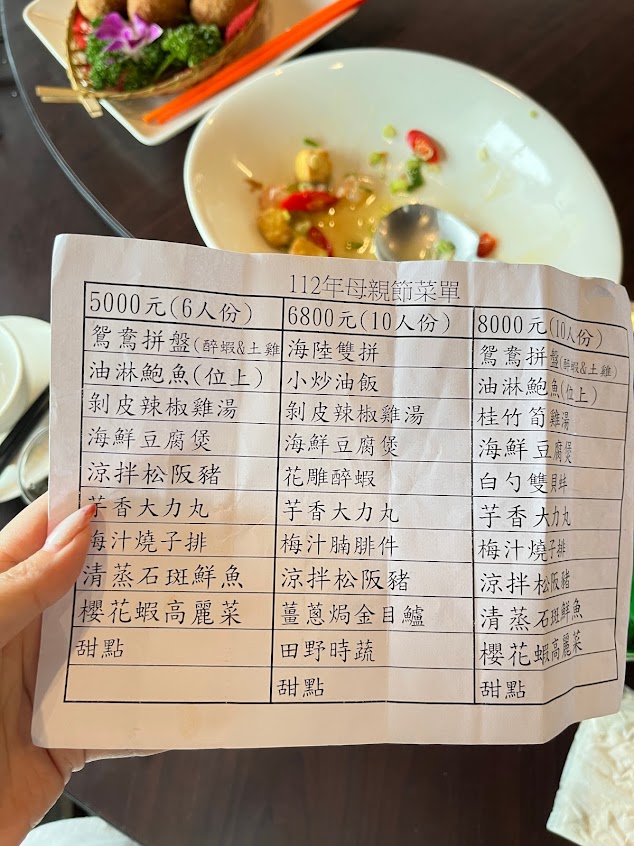 112年母親節菜單
5000元(6人份) 6800元(10人份) 8000元(10人份)
鴛鴦拼盤(醉蝦&土雞 海陸雙拼 鴛鴦拼盤(醉蝦&土雞)
油淋鮑魚(位上) 小炒油飯 油淋鮑魚(位上)
剝皮辣椒雞湯 剝皮辣椒雞湯 桂竹筍雞湯
海鮮豆腐煲 海鮮豆腐煲 海鮮豆腐煲
涼拌松阪豬 花雕醉蝦 白勺雙貝蚌
芋香大力丸 芋香大力丸 芋香大力丸
梅汁燒子排 梅汁腩腓件 梅汁燒子排
清蒸石斑鮮魚 涼拌松阪豬 涼拌松阪豬
櫻花蝦高麗菜 薑蔥焗金目鱸 清蒸石斑鮮魚
甜點 田野時蔬 櫻花蝦高麗菜
甜點 甜點